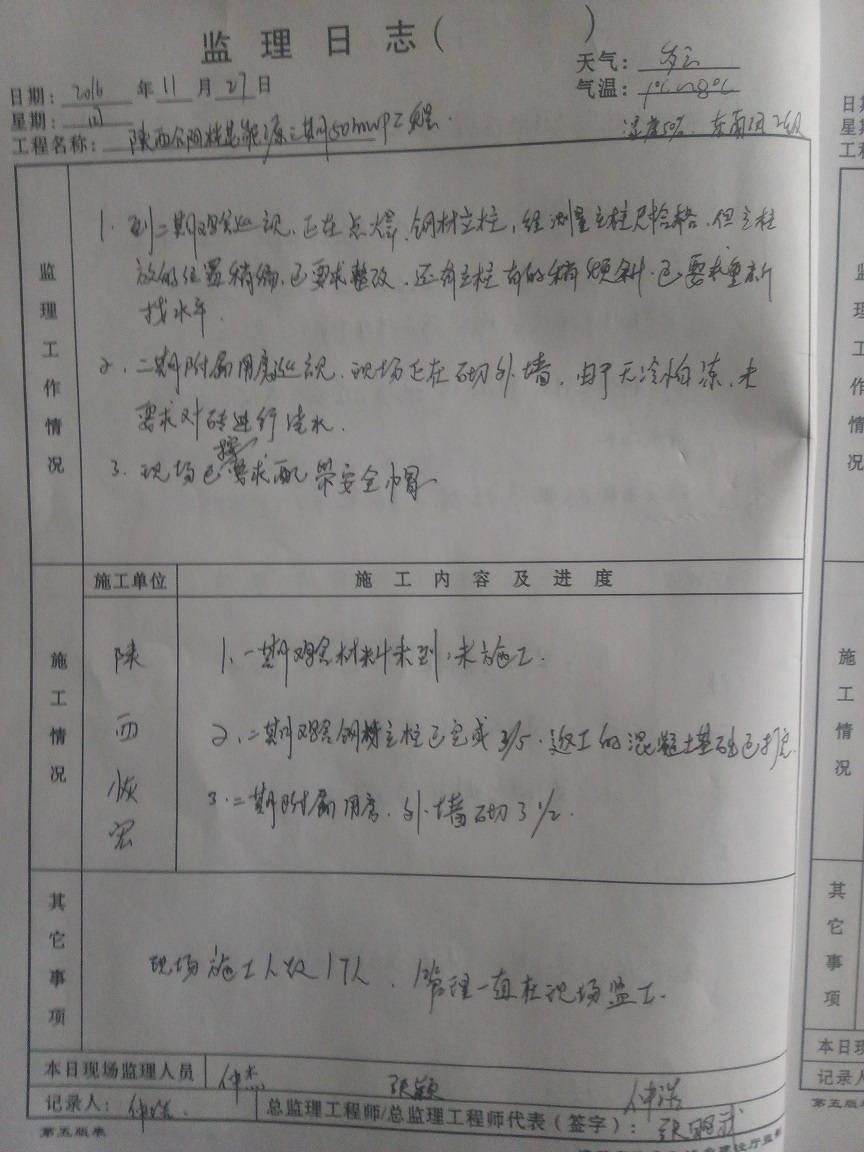 监理日志( )
天气：多云
日期：2016年11月27日
气温：1℃~8℃
星期：四
湿度50%. 东南风2级
工程名称：陕西合阳 三期50mwp工程.
监理工作情况
1. 到二期 巡视. 正在点焊. 钢材立柱, 经测量立柱尺 格. 但立柱
放的位置稍偏. 已要求整改. 还有立柱有的稍倾斜. 已要求重新
找水平.
2. 二期附属用房巡视. 现场正在砌外墙. 由于天冷怕冻. 未
要求对砖进行浇水.
3. 现场已按要求配带安全帽
施工单位
施工内容及进度
施工情况
陕西恢宏
1. 一期 材料未到, 未施工.
2. 二期 钢材立柱已完成3/5. 返工的混凝土基础已打完.
3. 二期附属用房. 外墙砌了1/2.
其它事项
现场施工人数17人. 1管理一直在现场监工.
本日现场监理人员 仲杰 张颖 仲浩
记录人： 仲浩. 总监理工程师/总监理工程师代表（签字）：
第五版表
建设厅监制